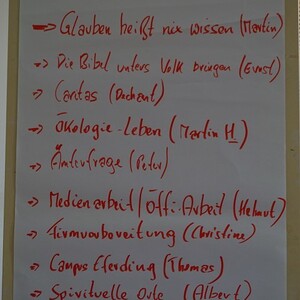 → Glauben heißt nix wissen (Martin)
→ Die Bibel unters Volk bringen (Ernst)
→ Caritas (Dechant)
→ Ökologie-Leben (Martin H)
→ Ämterfrage (Peter)
→ Medienarbeit / Öffi-Arbeit (Helmut)
→ Firmvorbereitung (Christine)
→ Campus Eferding (Thomas)
→ Spirituelle Orte (Albert)